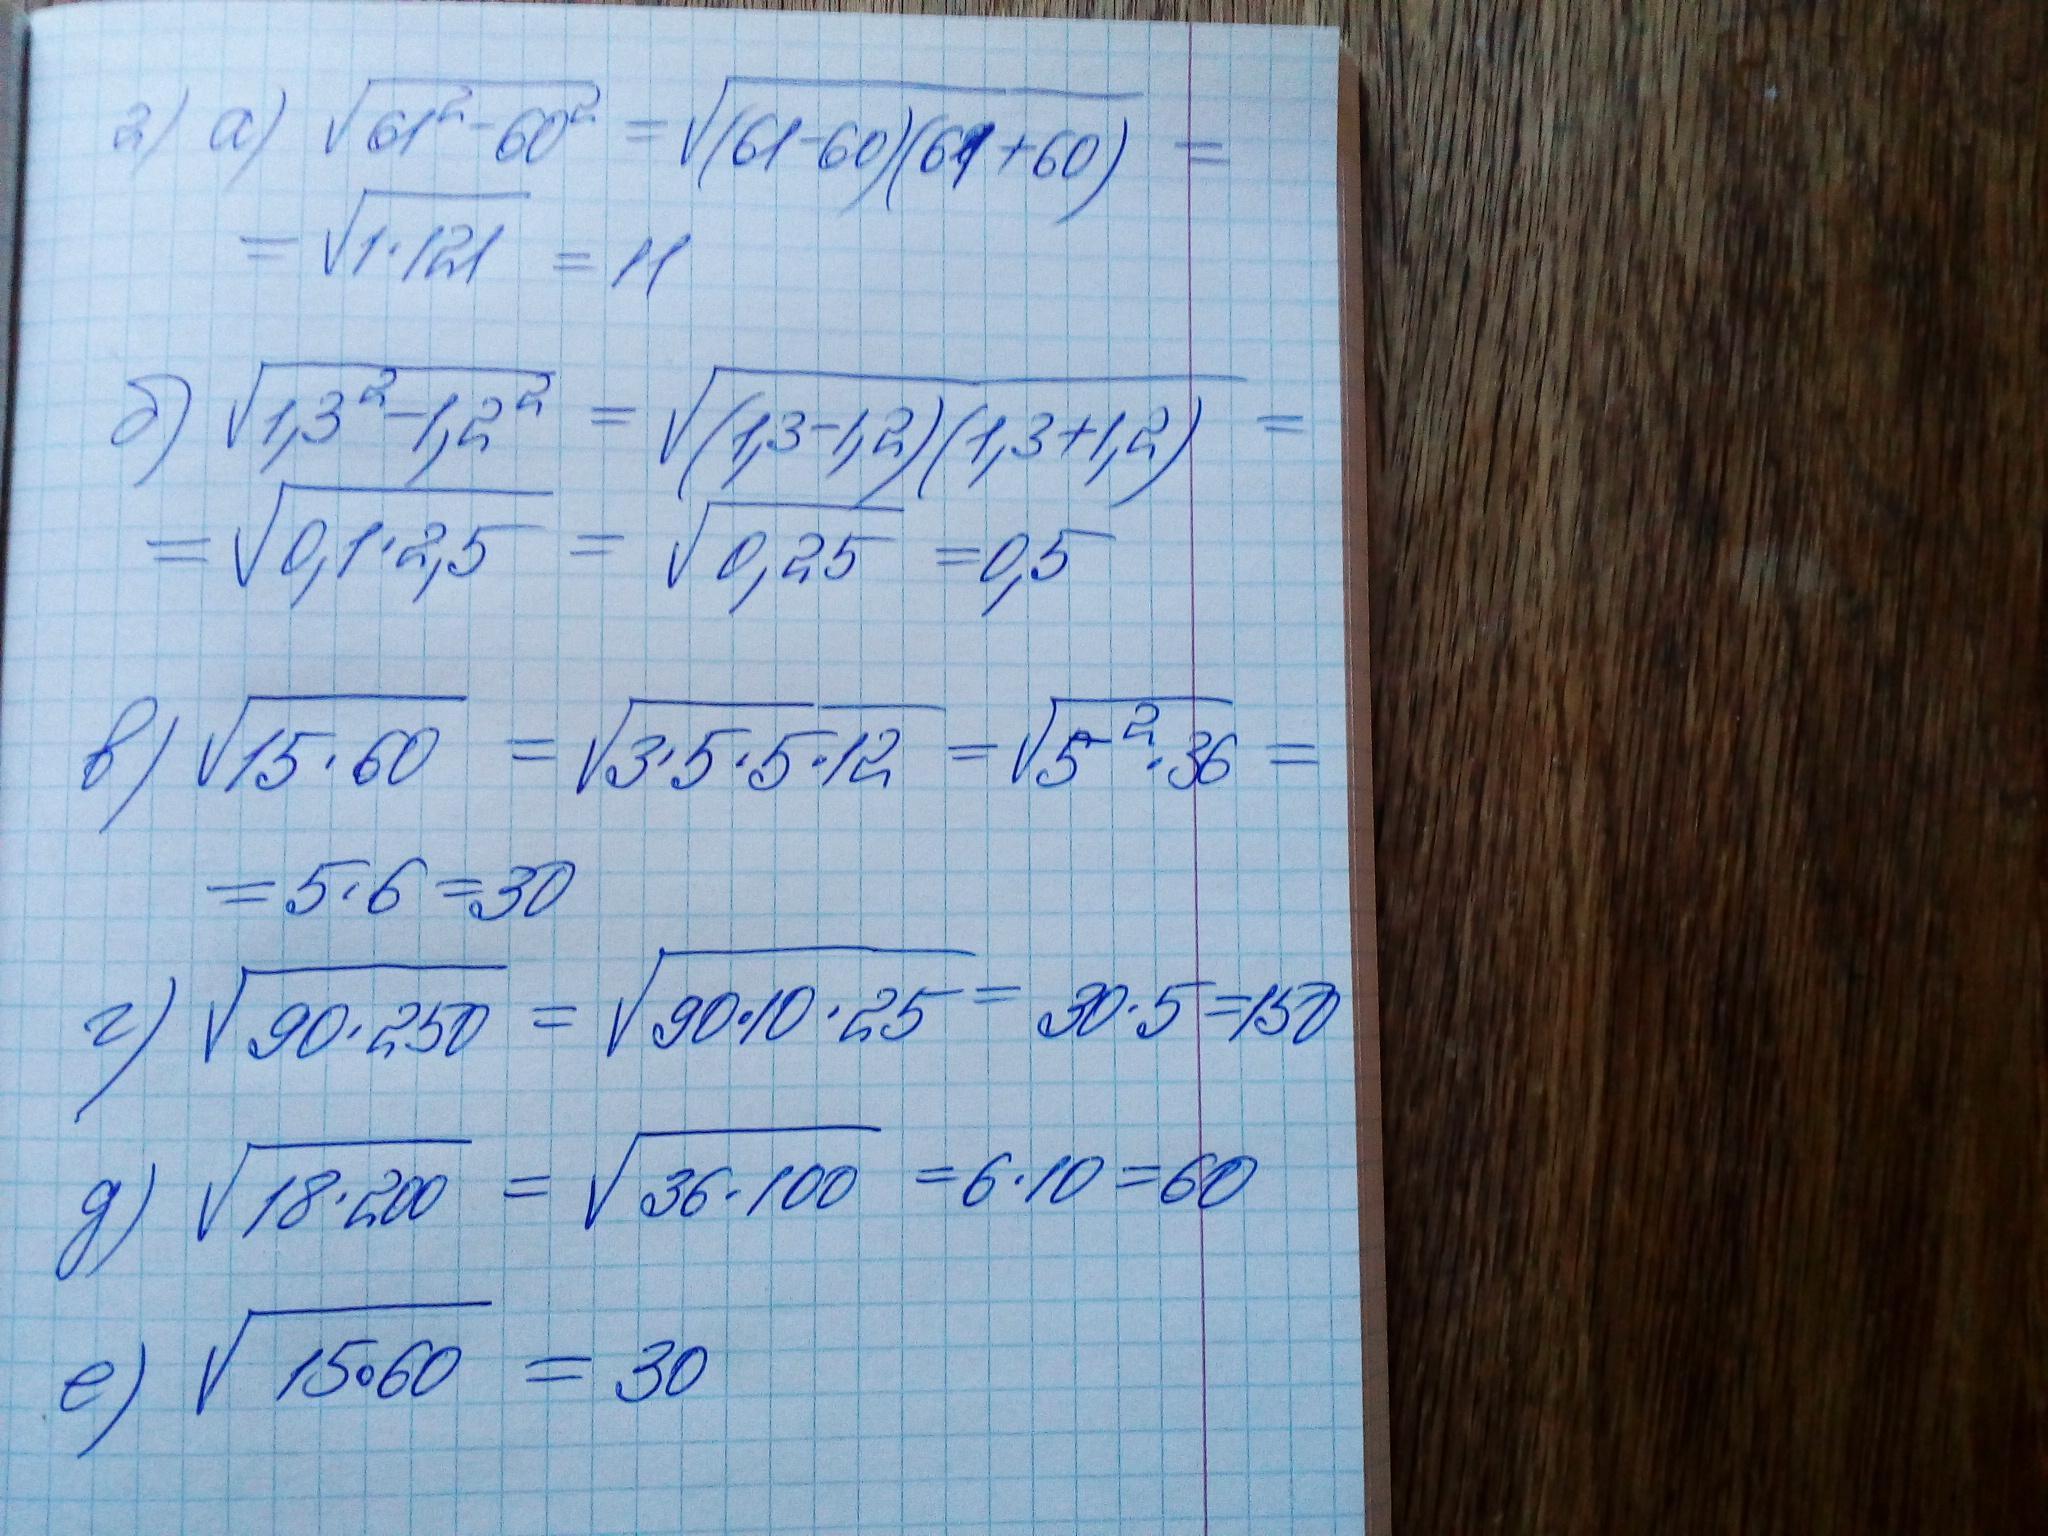 2) а) √61² - 60² = √(61-60)(61+60) =
= √1·121 = 11
б) √1,3² - 1,2² = √(1,3-1,2)(1,3+1,2) =
= √0,1·2,5 = √0,25 = 0,5
в) √15·60 = √3·5·5·12 = √5²·36 =
= 5·6 = 30
г) √90·250 = √90·10·25 = 30·5 = 150
д) √18·200 = √36·100 = 6·10 = 60
е) √15·60 = 30